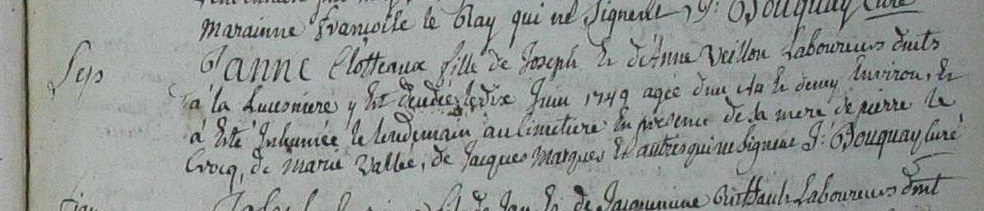 Marainne Françoise le Ray qui ne Signent, J: Bouquay Curé
Sep
Janne Clotteaux fille de Joseph Et d'Anne Veillon Laboureurs dmts
à la y Est le dix Juin 1749 agée d'un an Et demy Environ, Et
à Esté Inhumée le lendemain au Cimetiere En presence de Sa mere de pierre le
Crocq, de marie Vallée, de Jacques Marques Et autres qui ne Signent J: Bouquay Curé
de Jan Et de Jacquemine Laboureurs dmt